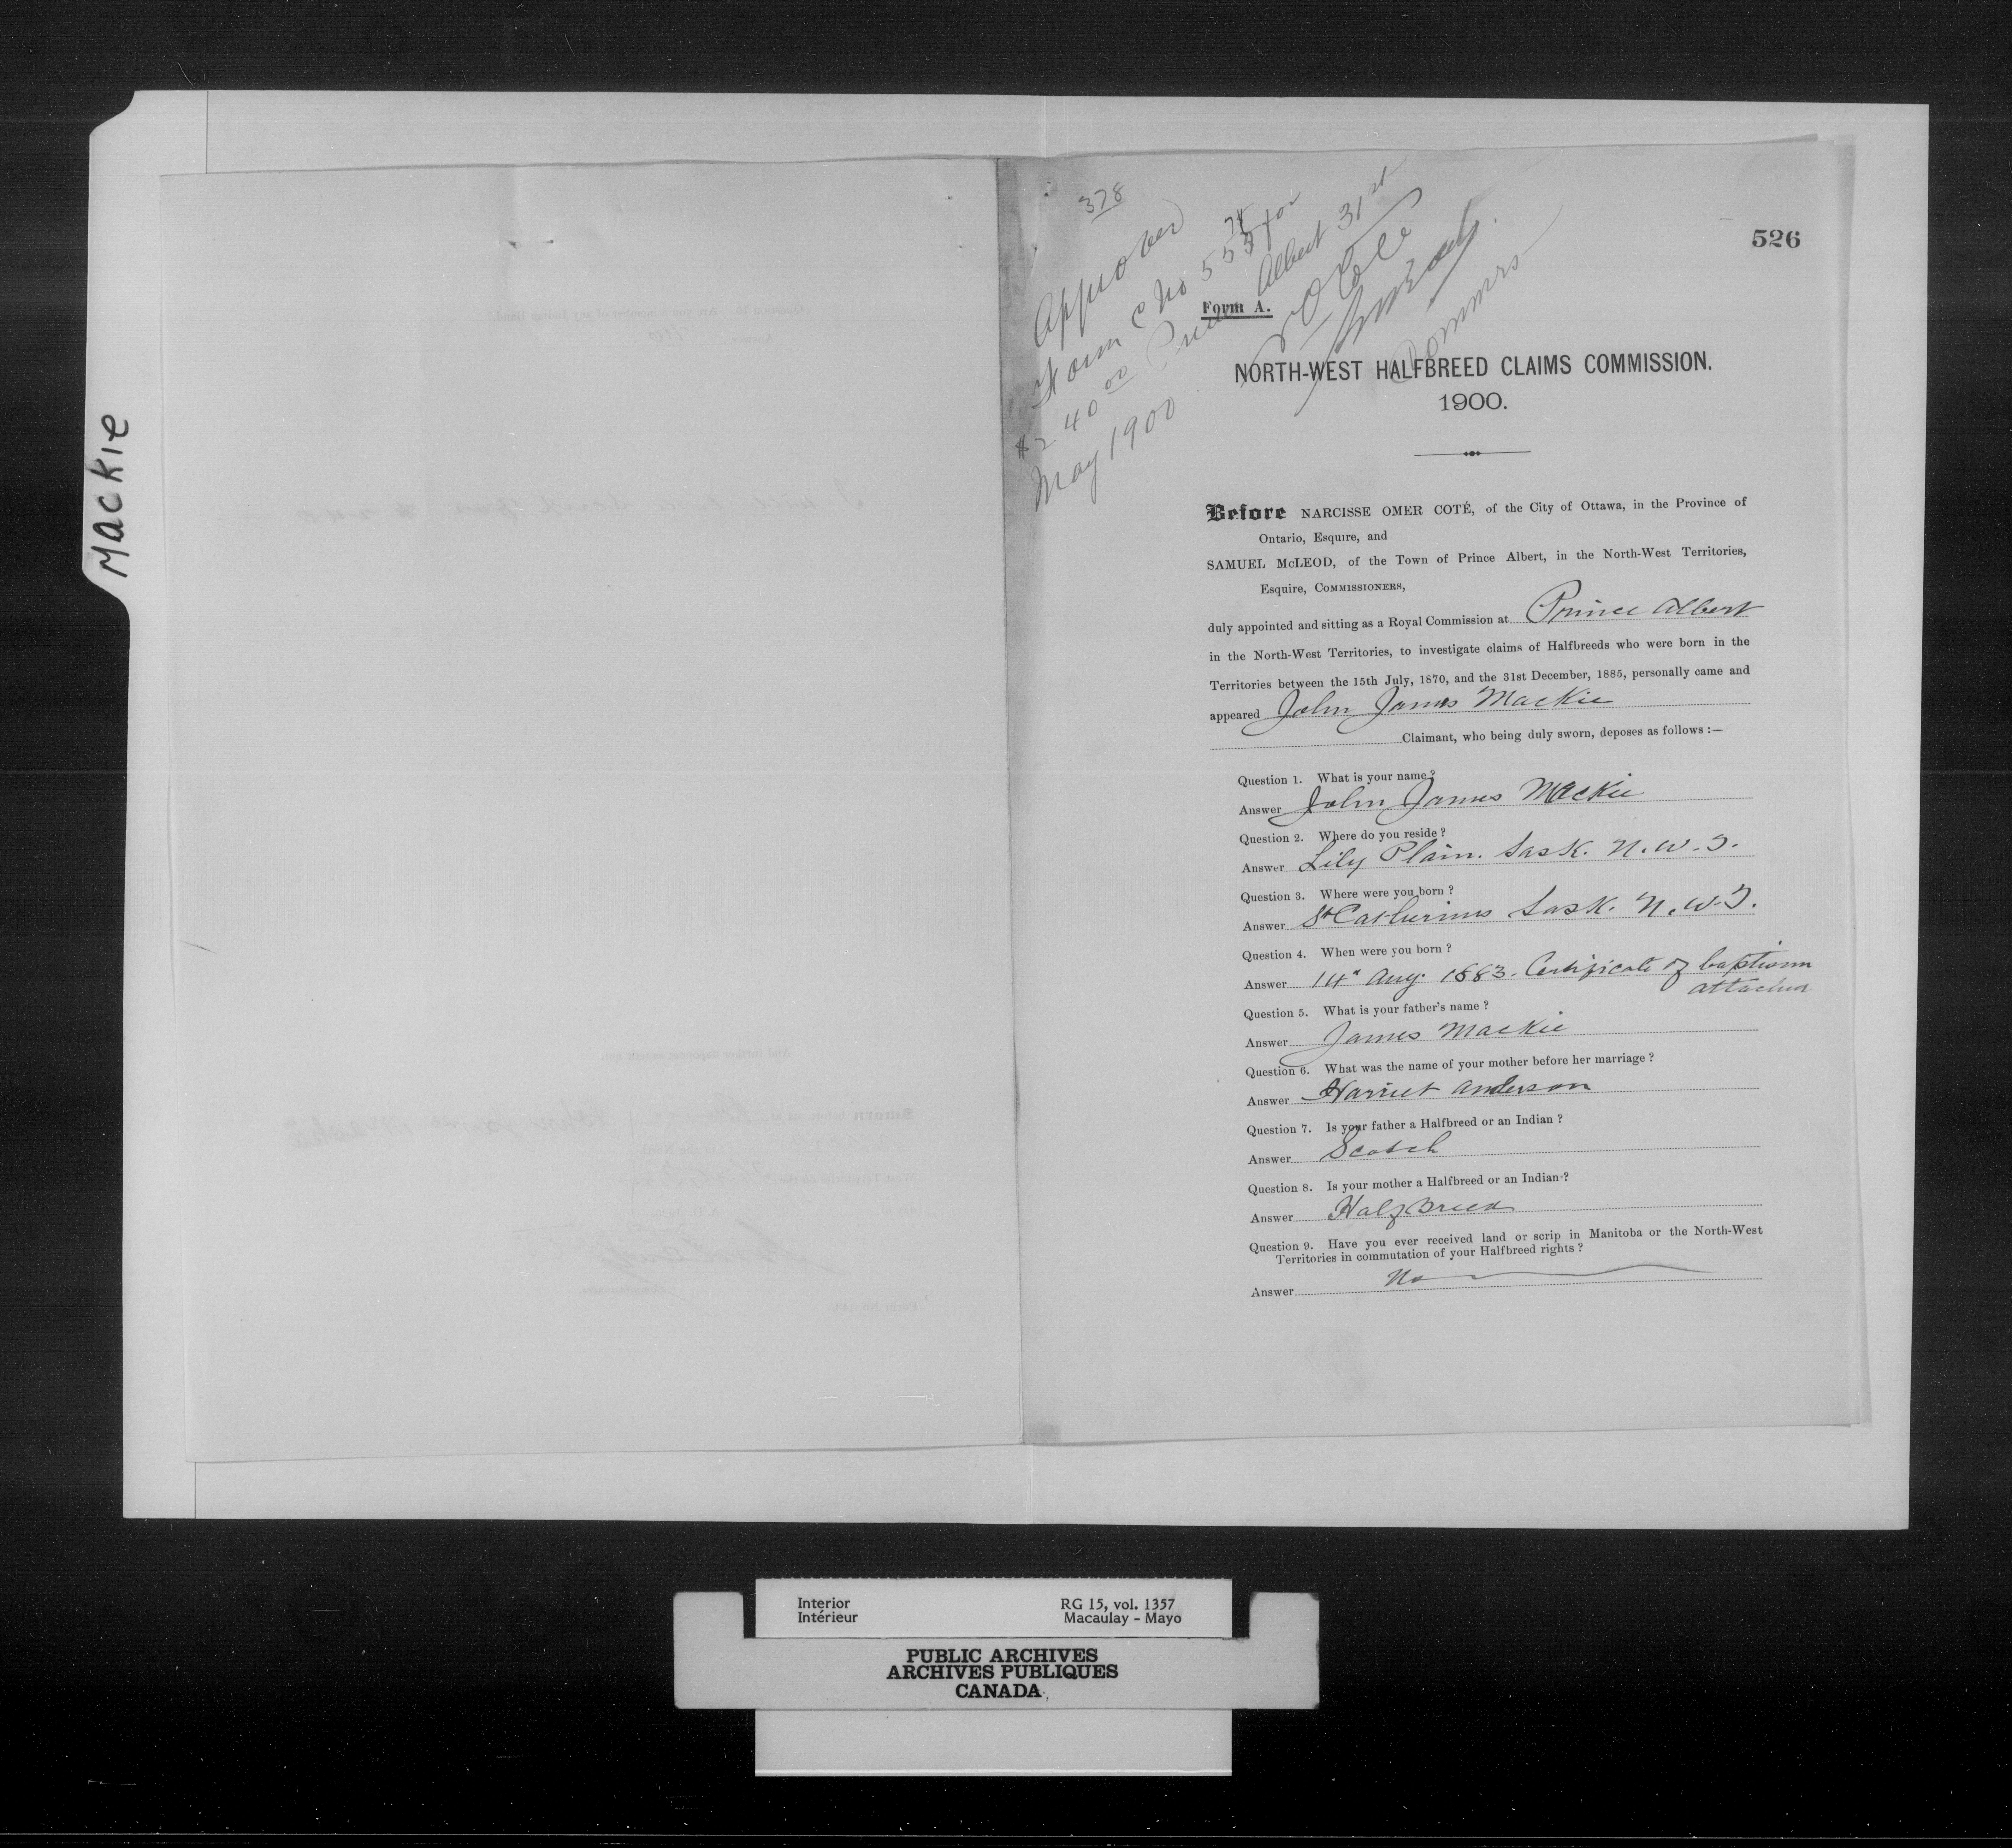 Mackie
378
526
Approved
Form C No 553 for
74
$240 00 Prince Albert 31st
May 1900
Commrs
Form A.
NORTH-WEST HALFBREED CLAIMS COMMISSION.
1900.
Before NARCISSE OMER COTÉ, of the City of Ottawa, in the Province of
Ontario, Esquire, and
SAMUEL McLEOD, of the Town of Prince Albert, in the North-West Territories,
Esquire, COMMISSIONERS,
duly appointed and sitting as a Royal Commission at Prince Albert
in the North-West Territories, to investigate claims of Halfbreeds who were born in the
Territories between the 15th July, 1870, and the 31st December, 1885, personally came and
appeared John James Mackie
Claimant, who being duly sworn, deposes as follows :—
Question 1. What is your name ?
Answer John James Mackie
Question 2. Where do you reside ?
Answer Lily Plain. Sask. N.W.T.
Question 3. Where were you born ?
Answer St Catherines Sask. N.W.T.
Question 4. When were you born ?
Answer 14th Aug. 1883. Certificate of baptism
attached
Question 5. What is your father's name ?
Answer James Mackie
Question 6. What was the name of your mother before her marriage ?
Answer Harriet Anderson
Question 7. Is your father a Halfbreed or an Indian ?
Answer Scotch
Question 8. Is your mother a Halfbreed or an Indian ?
Answer Halfbreed
Question 9. Have you ever received land or scrip in Manitoba or the North-West
Territories in commutation of your Halfbreed rights ?
Answer No
Interior
Intérieur
RG 15, vol. 1357
Macaulay - Mayo
PUBLIC ARCHIVES
ARCHIVES PUBLIQUES
CANADA